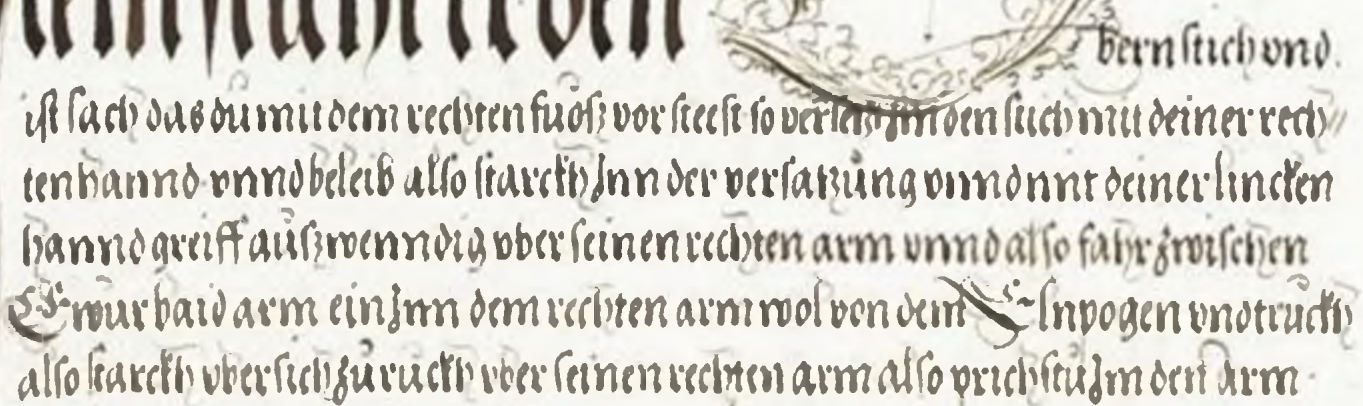 bern stich vnd
ist sach das du mit dem rechten fuoß vor steest so versetz Jm den stich mit deiner rech//
ten hannd vnnd beleib also starckh Jnn der versatzung vnnd mit deiner lincken
hannd greiff außwenndig vber seinen rechten arm vnnd also fahr zwischen
Ewur baid arm ein Jnn dem rechten arm wol von dem Elnpogen vnd truckh
also starckh vber sich zuruckh vber seinen rechten arm also prichstu Jm den Arm